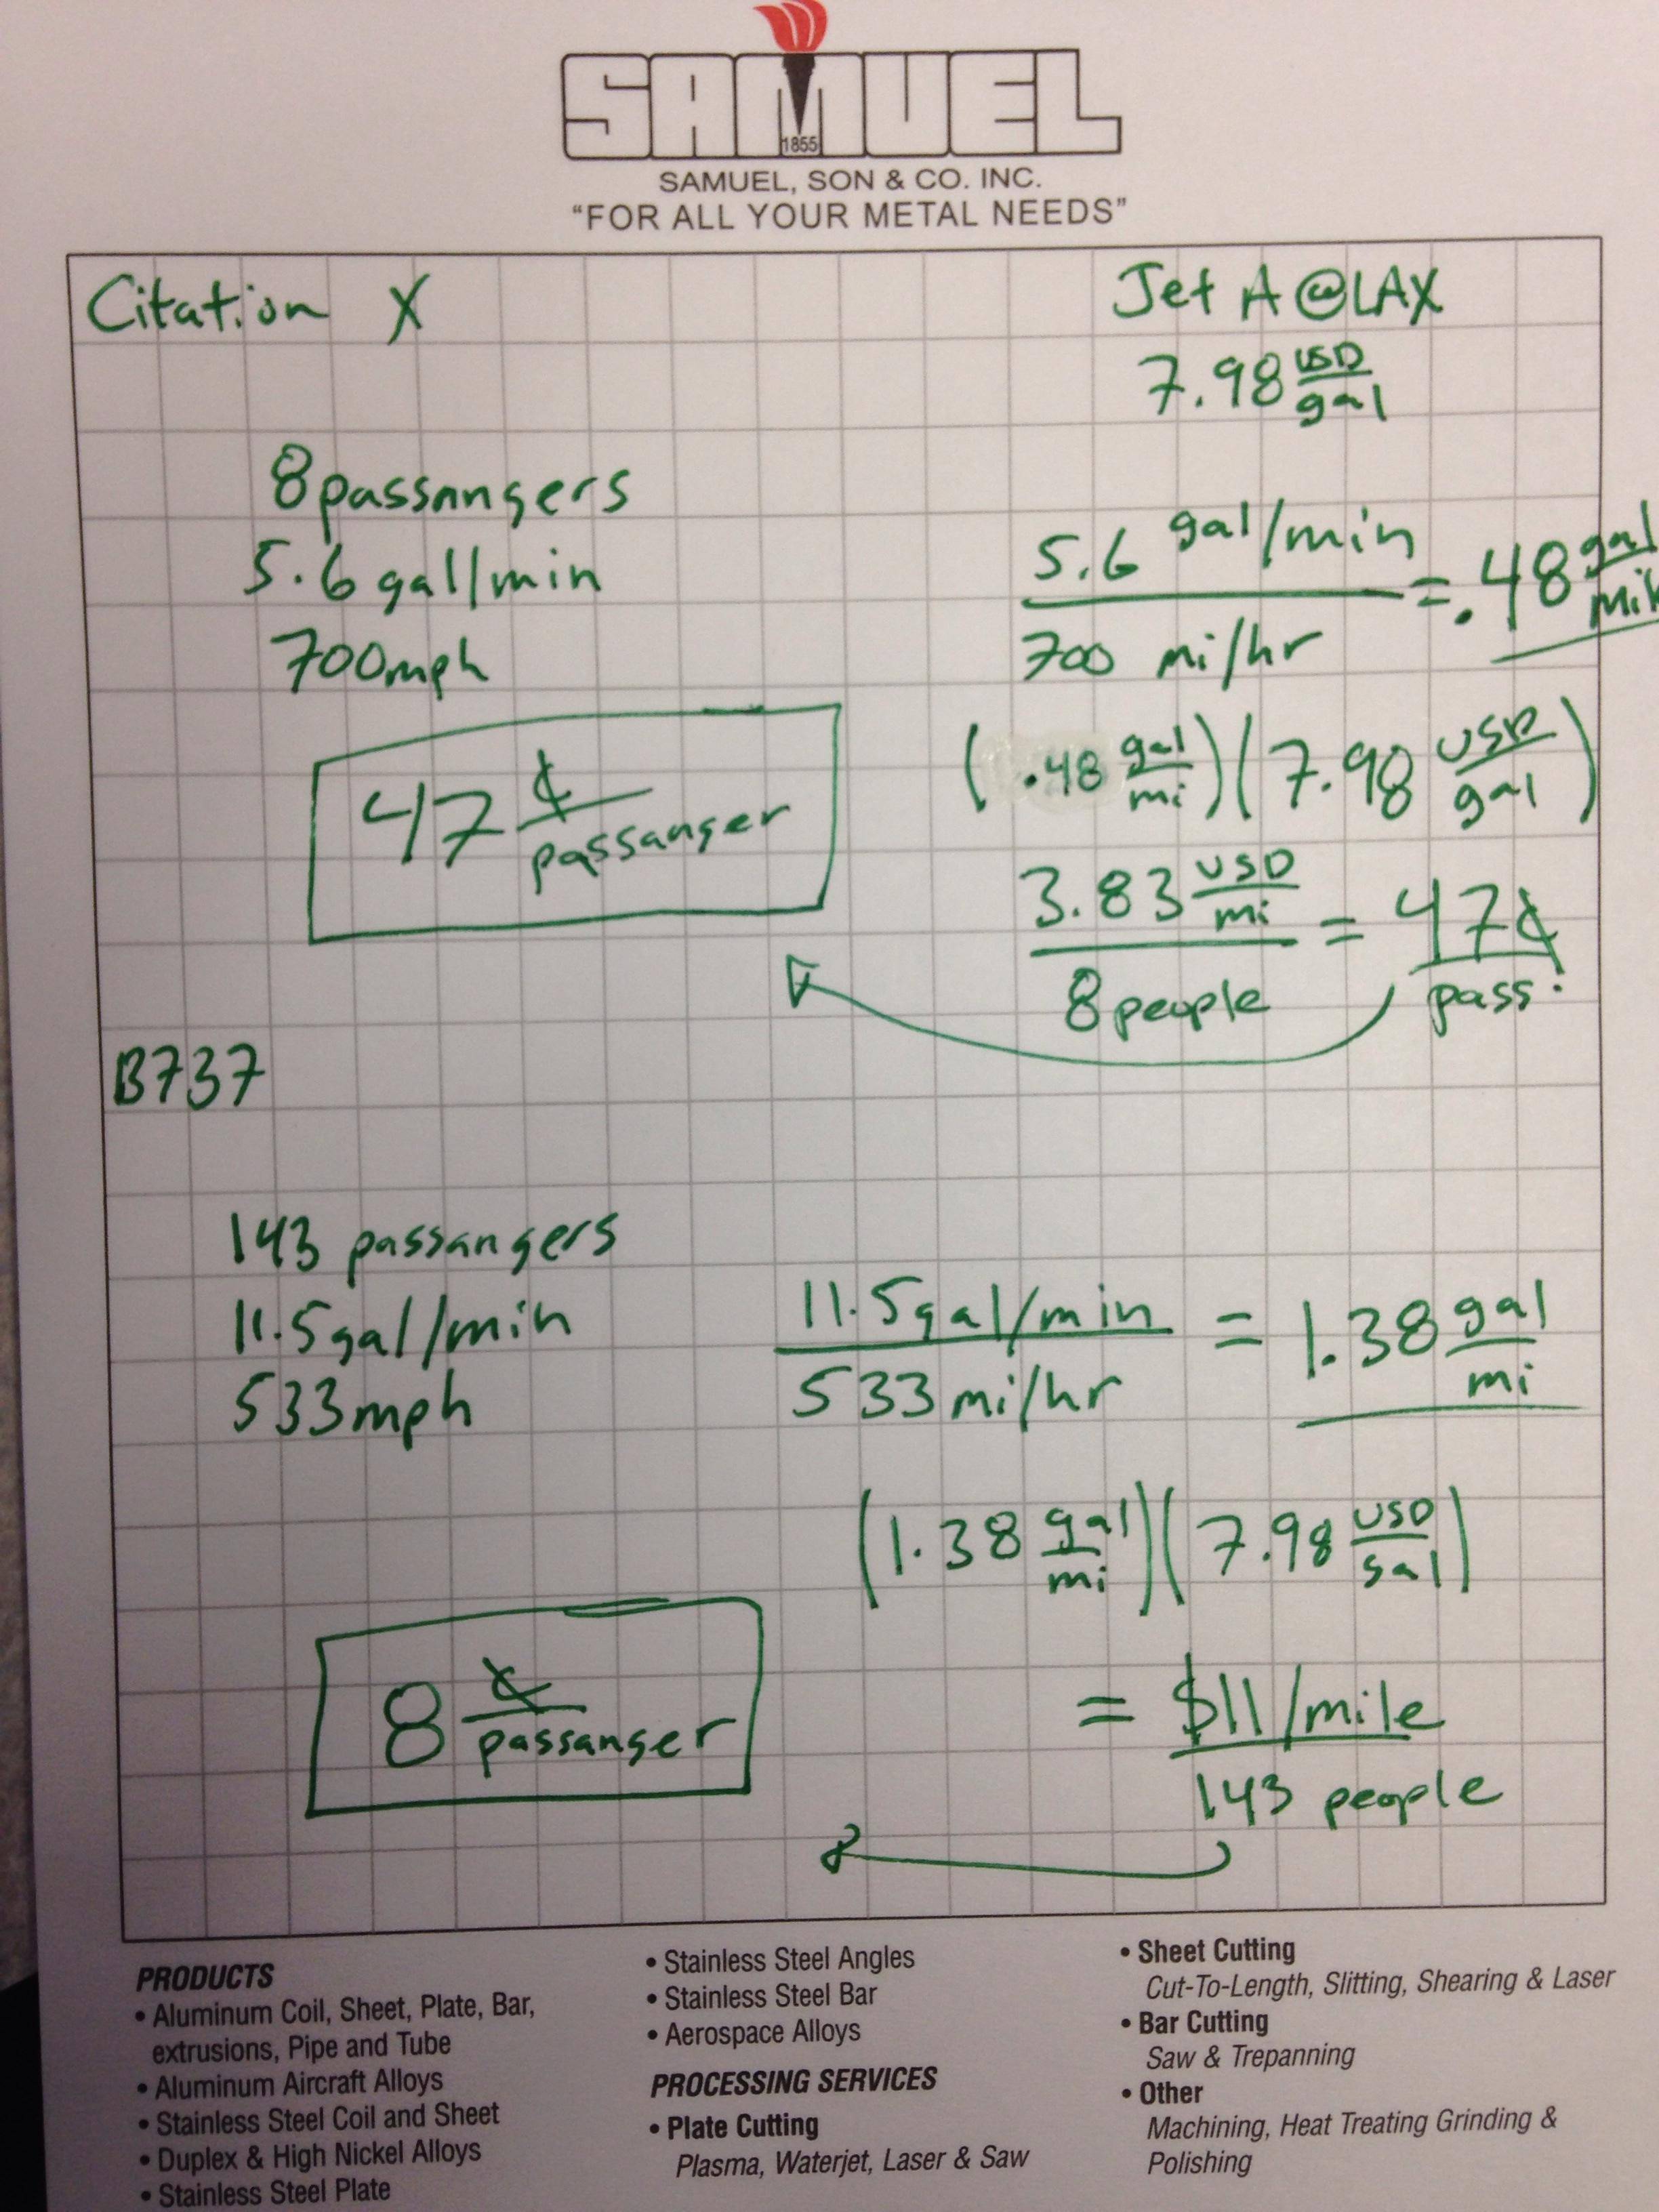 SAMUEL
1855
SAMUEL, SON & CO. INC.
“FOR ALL YOUR METAL NEEDS”
Citation X
Jet A @LAX
7.98 USD/gal
8 passangers
5.6 gal/min
700mph
5.6 gal/min / 700 mi/hr = .48 gal/mil
(.48 gal/mi)(7.98 USD/gal)
47 ¢/passanger
3.83 USD/mi / 8 people = 47¢/pass.
B737
143 passangers
11.5gal/min
533mph
11.5gal/min / 533mi/hr = 1.38 gal/mi
(1.38 gal/mi)(7.98 USD/gal)
8 ¢/passanger
= $11/mile / 143 people
PRODUCTS
• Aluminum Coil, Sheet, Plate, Bar,
extrusions, Pipe and Tube
• Aluminum Aircraft Alloys
• Stainless Steel Coil and Sheet
• Duplex & High Nickel Alloys
• Stainless Steel Plate
• Stainless Steel Angles
• Stainless Steel Bar
• Aerospace Alloys
PROCESSING SERVICES
• Plate Cutting
Plasma, Waterjet, Laser & Saw
• Sheet Cutting
Cut-To-Length, Slitting, Shearing & Laser
• Bar Cutting
Saw & Trepanning
• Other
Machining, Heat Treating Grinding &
Polishing